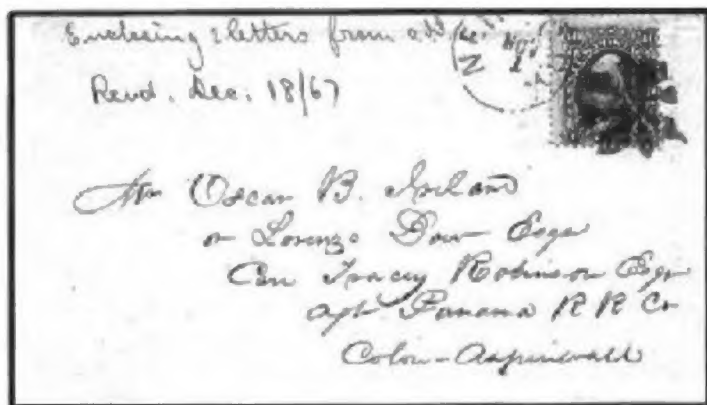 Enclosing 2 letters from
Recvd. Dec. 18/67
Mr Oscar B. Ireland
or Lorenzo Dow Esqr
Care Tracey Robinson Esqr
agt. Panama R R Co
Colon-Aspinwall